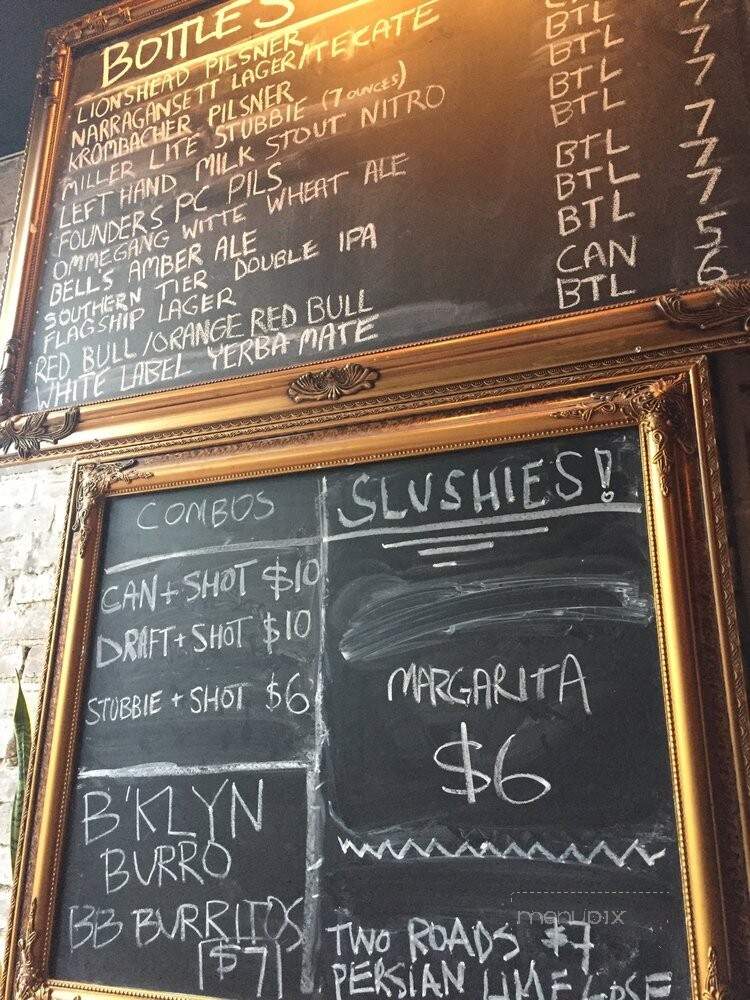 BOTTLES
LIONSHEAD PILSNER
NARRAGANSETT LAGER/TECATE
KROMBACHER PILSNER BTL 7
MILLER LITE STUBBIE (7 OUNCES) BTL 7
LEFT HAND MILK STOUT NITRO BTL 7
FOUNDERS PC PILS BTL
OMMEGANG WITTE WHEAT ALE BTL 7
BELLS AMBER ALE BTL 7
SOUTHERN TIER DOUBLE IPA BTL 7
FLAGSHIP LAGER
RED BULL/ORANGE RED BULL CAN 5
WHITE LABEL YERBA MATE BTL 6
COMBOS
CAN + SHOT $10
DRAFT + SHOT $10
STUBBIE + SHOT $6
B'KLYN
BURRO
BB BURRITOS
$7
SLUSHIES!
MARGARITA
$6
TWO ROADS $7
PERSIAN LIME GOSE
menupix